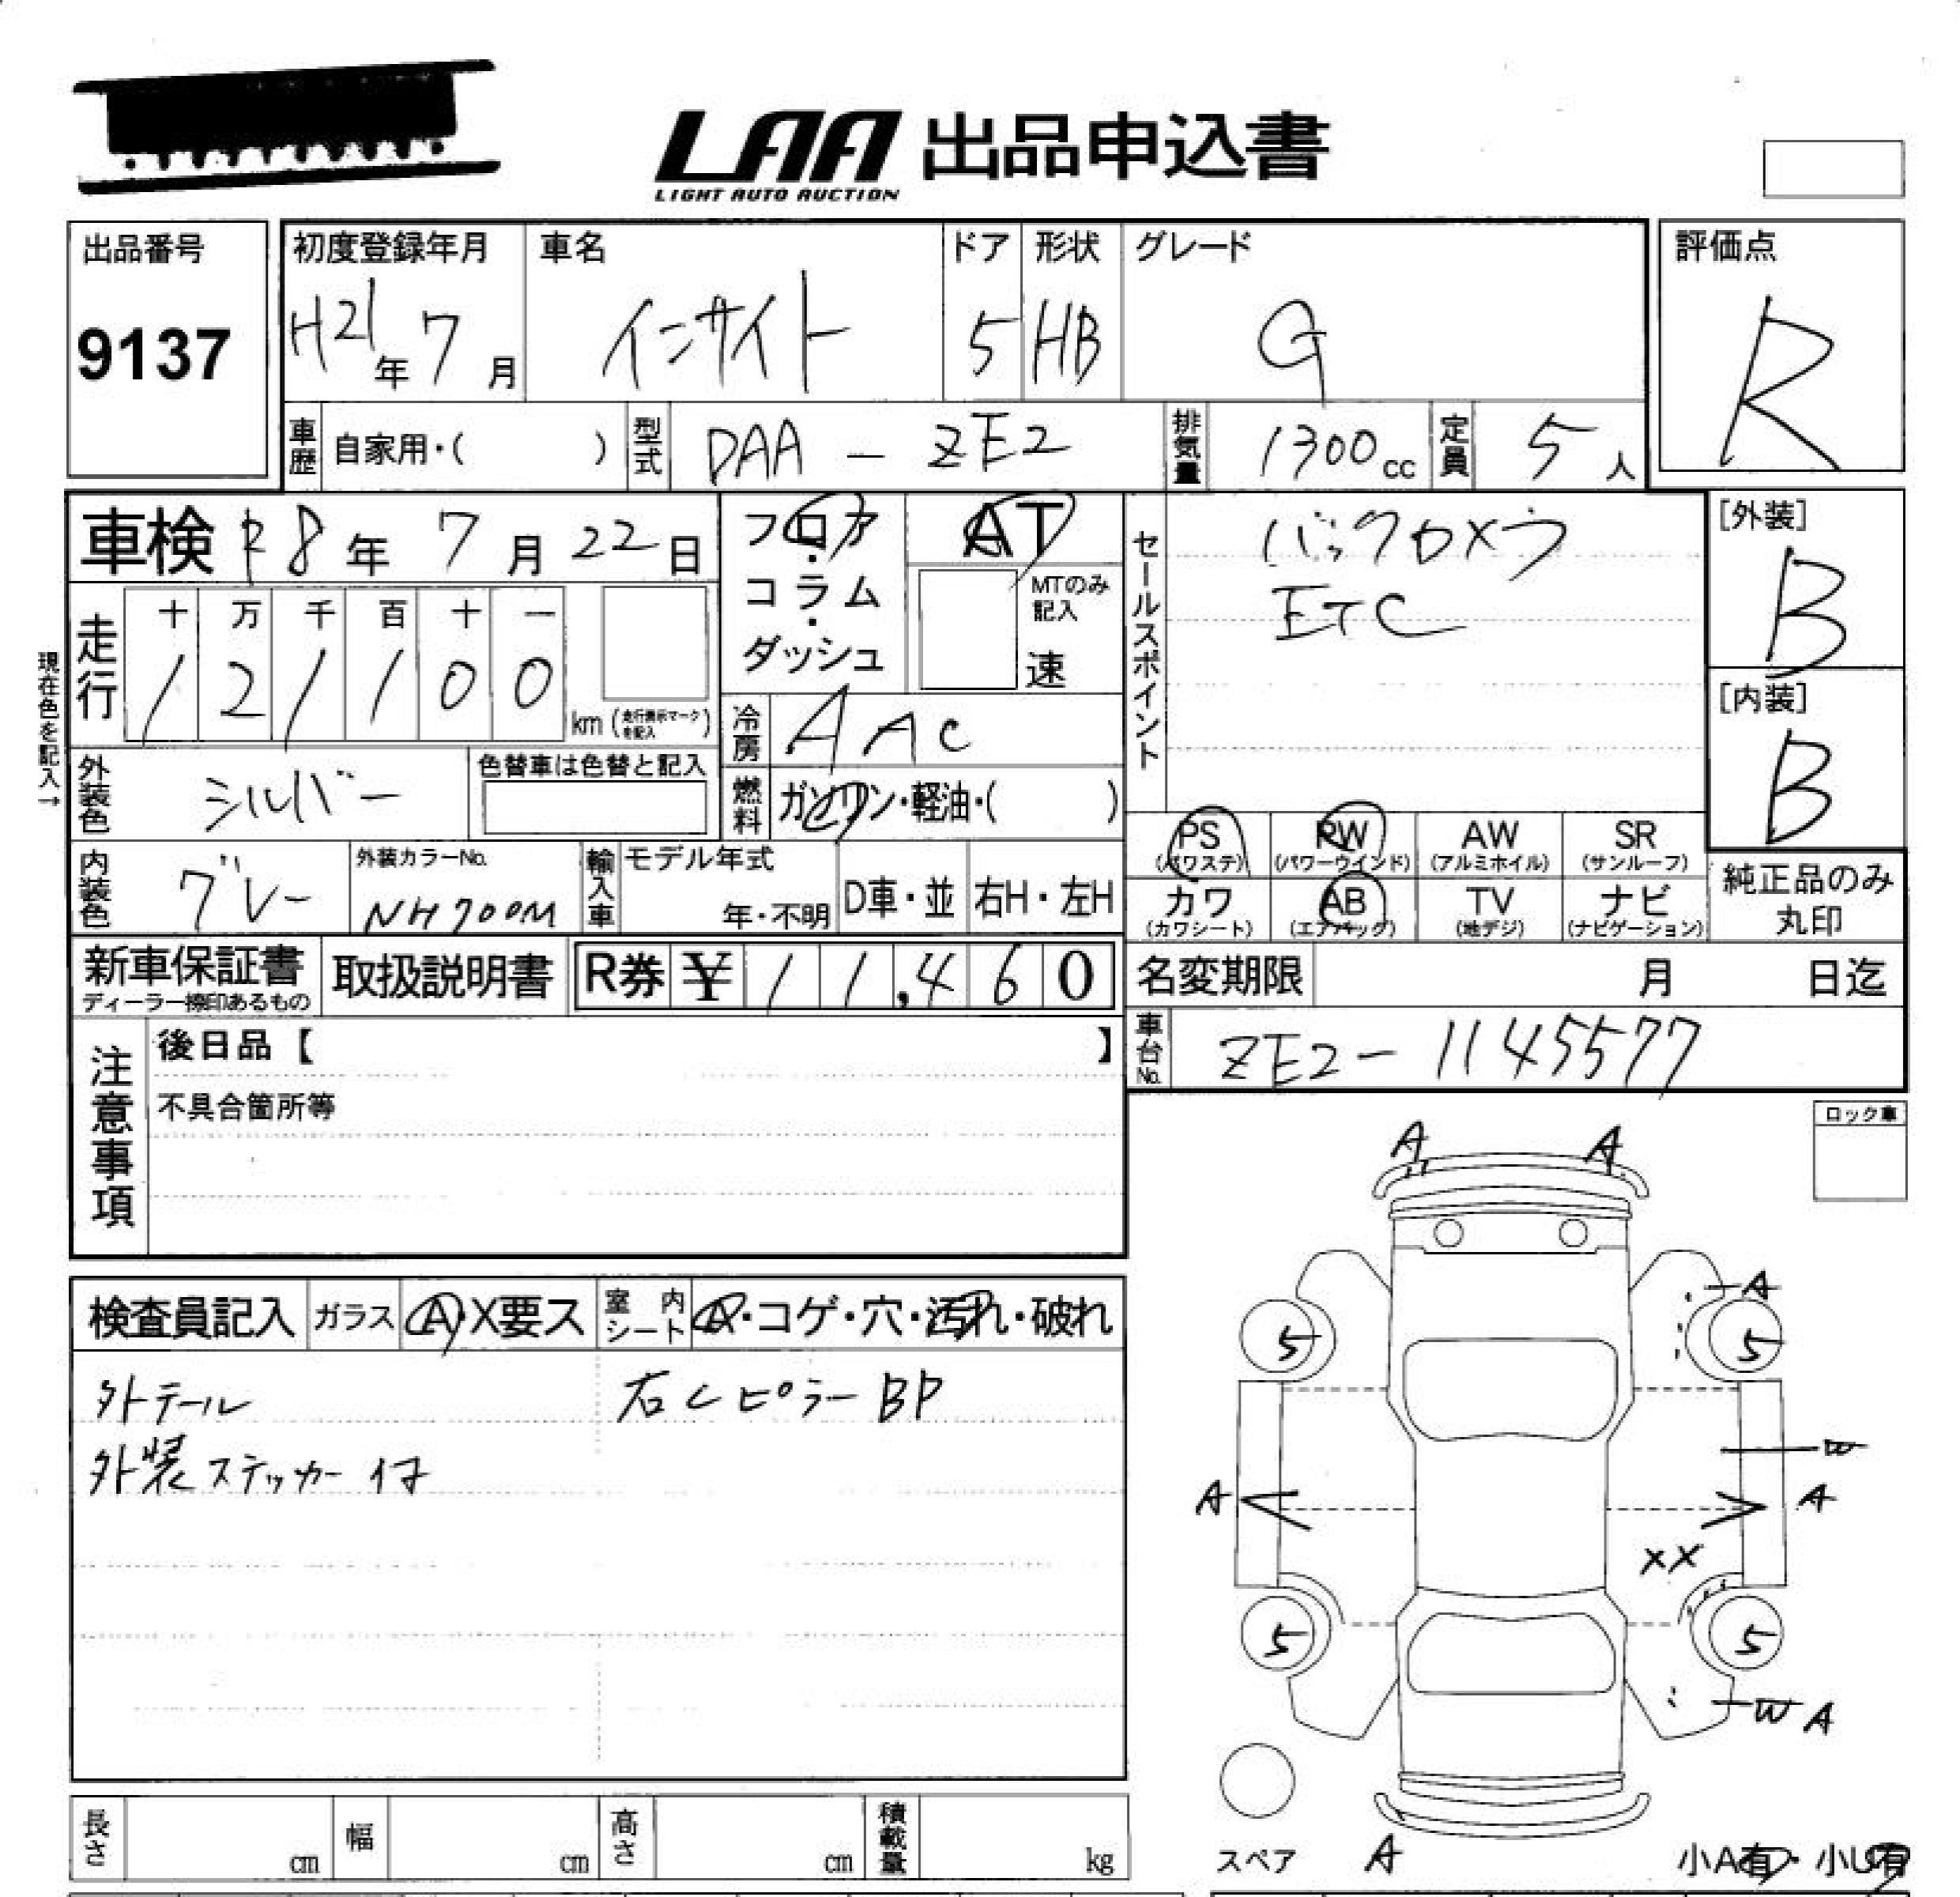 LAA 出品申込書
LIGHT AUTO AUCTION
出品番号
9137
初度登録年月
H21年 7月
車名
インサイト
ドア
5
形状
HB
グレード
G
評価点
R
車歴 自家用・( )
型式 DAA - ZE2
排気量 1300cc
定員 5人
車検 R8年 7月 22日
フロア・コラム・ダッシュ
AT
MTのみ記入
速
セールスポイント
バックカメラ
ETC
[外装]
B
[内装]
B
現在色を記入→
走行
十 万 千 百 十 一
1 2 1 1 0 0 km (走行表示マークを記入)
冷房 AAC
外装色 シルバー
色替車は色替と記入
燃料 ガソリン・軽油・( )
PS (パワステ)
PW (パワーウインド)
AW (アルミホイル)
SR (サンルーフ)
カワ (カワシート)
AB (エアバッグ)
TV (地デジ)
ナビ (ナビゲーション)
純正品のみ丸印
内装色 グレー
外装カラーNo.
NH700M
輸入車
モデル年式
年・不明
D車・並
右H・左H
新車保証書
ディーラー捺印あるもの
取扱説明書
R券 ¥ 11,460
名変期限 月 日迄
車台No. ZE2-1145577
注意事項
後日品【 】
不具合箇所等
ロック車
検査員記入
ガラス A・X要ス
室内シート A・コゲ・穴・汚れ・破れ
外テール
右CピラーBP
外装ステッカー付
A A
A
5 5
W
A A
XX
5 5
W A
スペア
A
小A有・小U有
長さ cm
幅 cm
高さ cm
積載量 kg